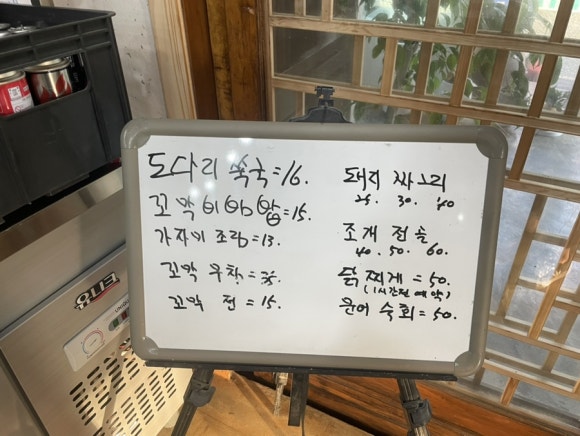 도다리 쑥국=16.
꼬막비빔밥=15.
가자미 조림=13.
꼬막 무침=35.
꼬막 전=15.
돼지 짜그리
25. 30. 40
조개 전골
40. 50. 60.
닭찌개=50.
(1시간전 예약)
문어 숙회=50.
유니크